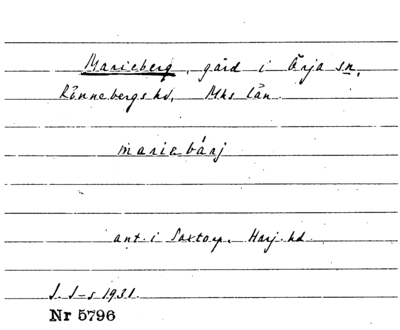 Marieberg, gård i Örja sn,
Rönnebergs hd, Mhs län.
mariebárj
ant. i Saxtorp, Harj. hd
1931.
Nr 5796